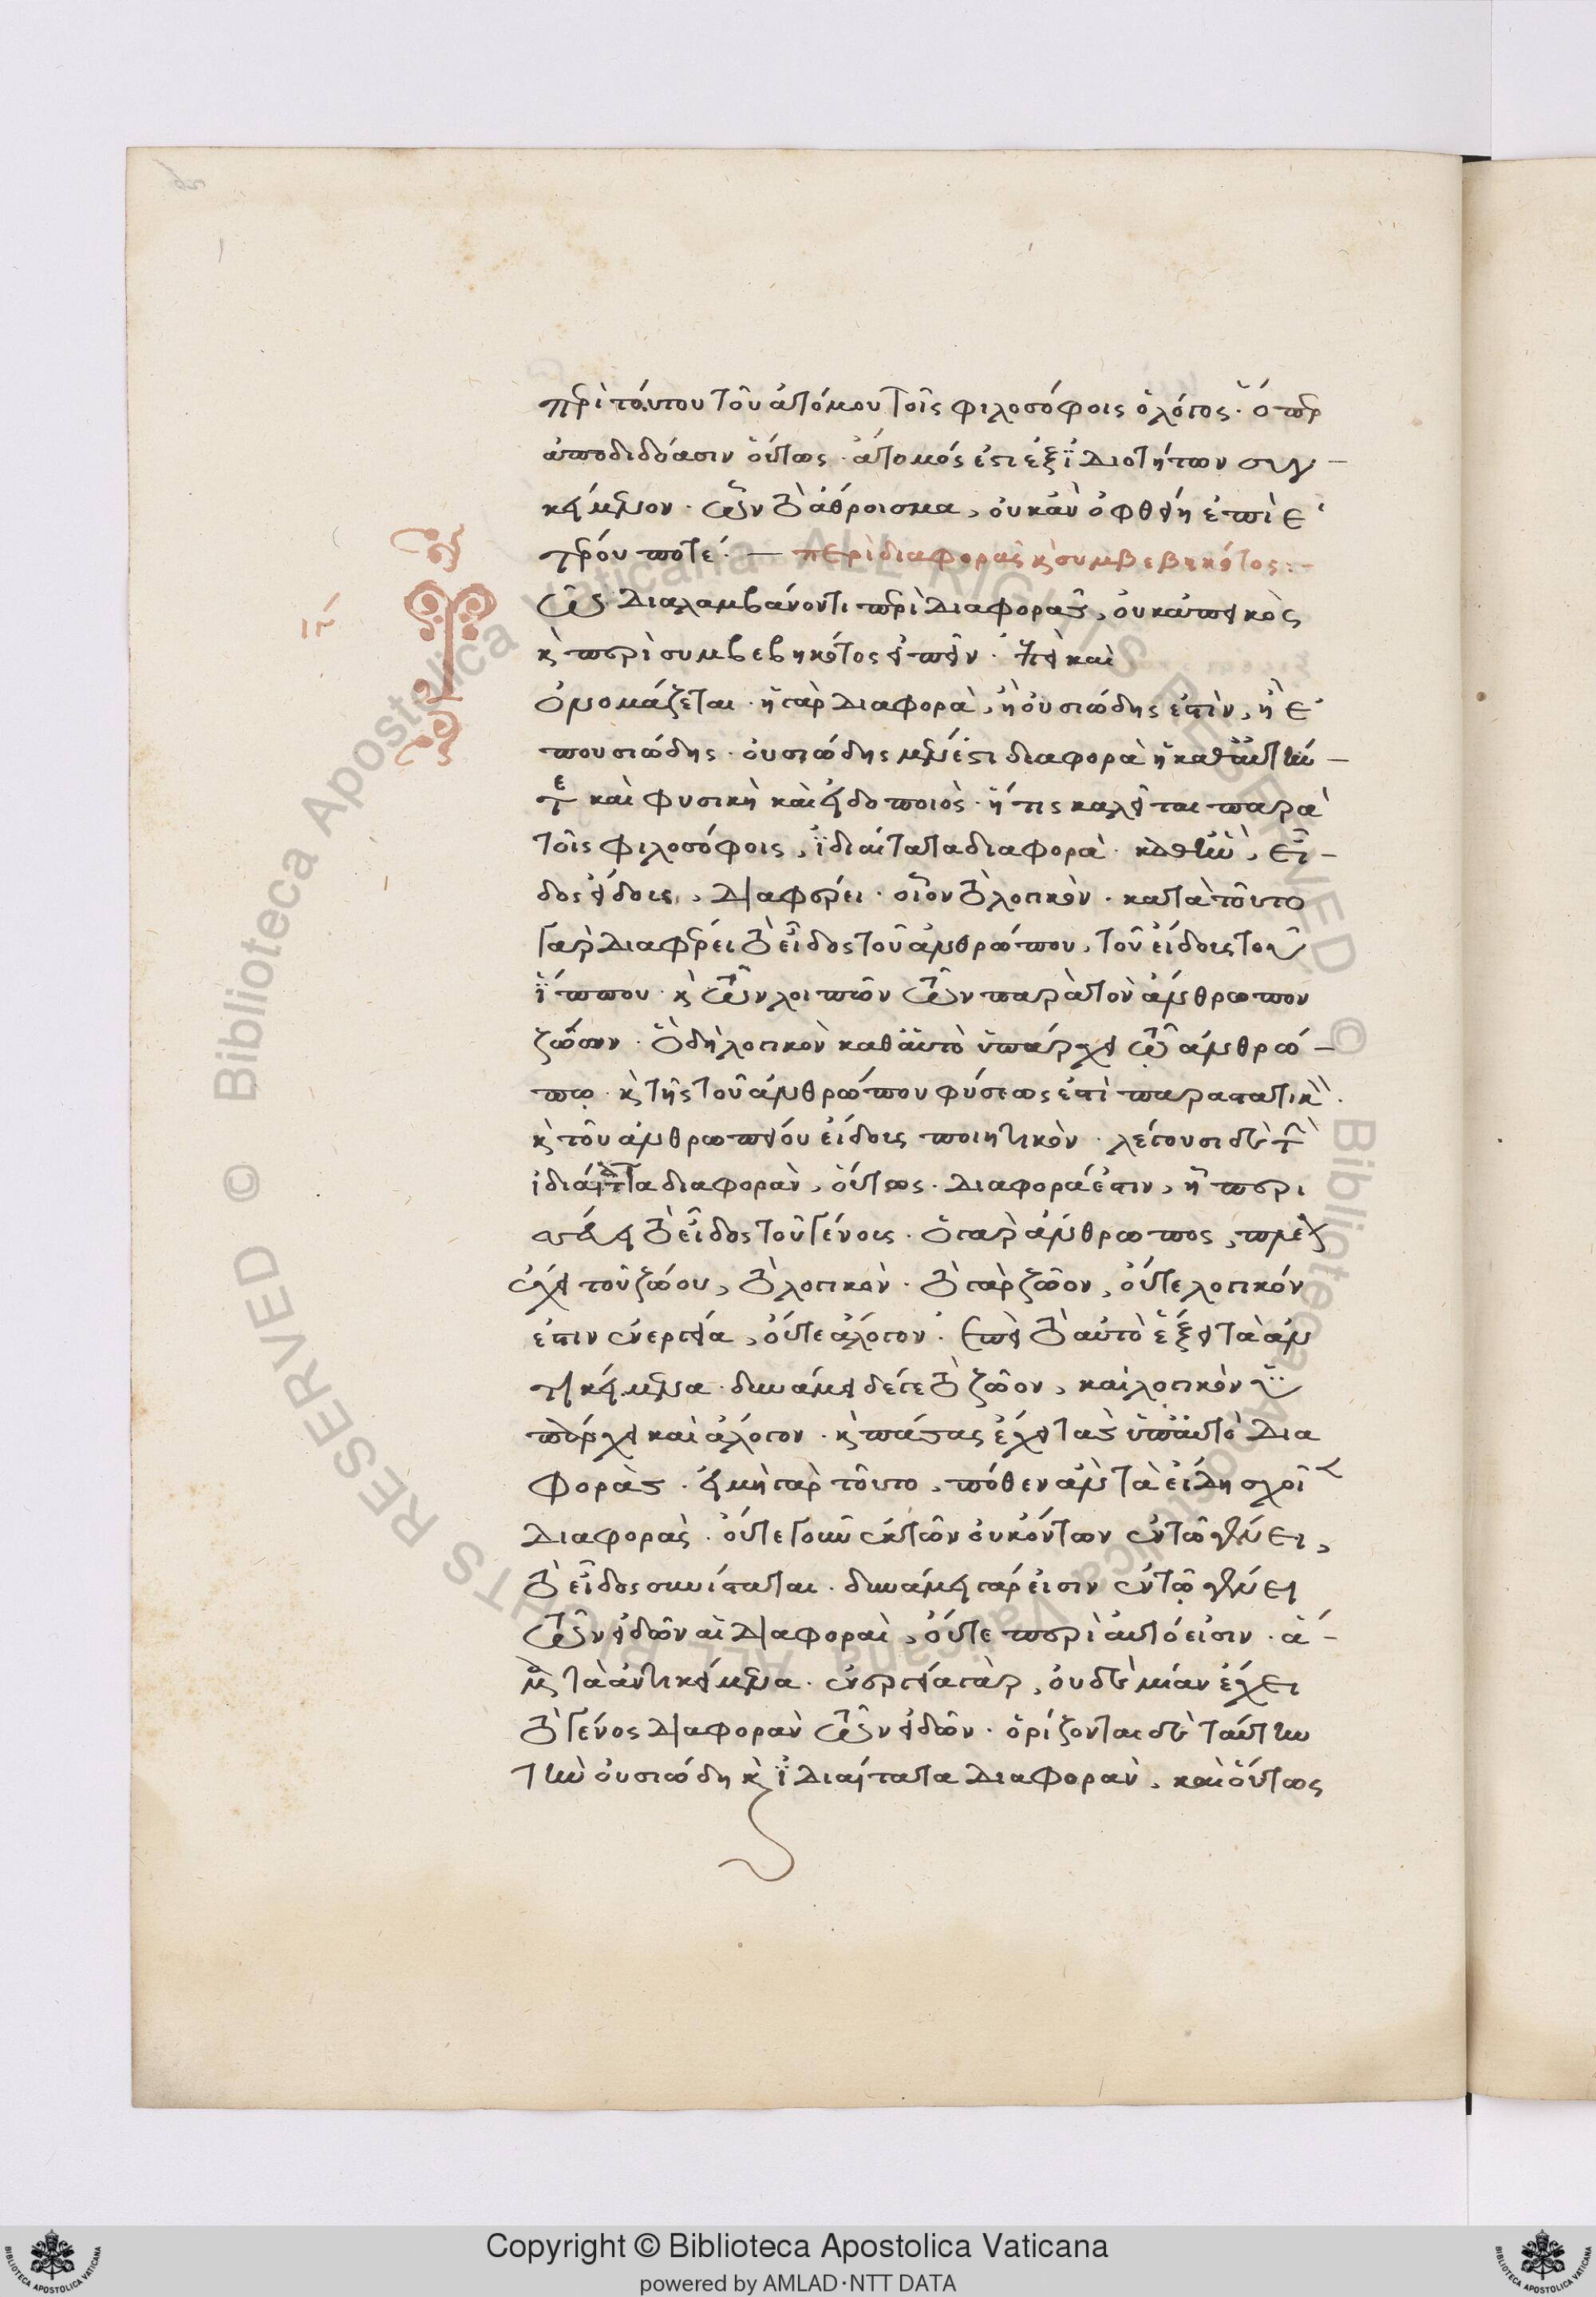 περὶ τούτου τοῦ ἀτόμου τοῖς φιλοσόφοις ὁ λόγος. ὅπερ
ἀποδιδόασιν οὕτως. ἄτομός ἐστι ἐξ ἰδιοτήτων συγ-
κείμενον. ὧν τὸ ἄθροισμα, οὐκ ἂν ὀφθείη ἐπὶ ἑ
τέρου ποτέ. — περὶ διαφορᾶς κ̀ συμβεβηκότος:-
τοῖς διαλαμβάνοντι περὶ διαφορᾶς, οὐκ ἀπεικὸς
κ̀ περὶ συμβεβηκότος εἰπεῖν. ἐπεὶ καὶ
ὀνομάζεται. ἡ γὰρ διαφορὰ, ἢ οὐσιώδης ἐστὶν, ἢ ἐ
πουσιώδης. οὐσιώδης μέν ἐστι διαφορὰ ἡ καθ' αὑτήν
τε καὶ φυσικὴ καὶ εἰδοποιὸς. ἥτις καλεῖται παρὰ
τοῖς φιλοσόφοις, ἰδιαίτατα διαφορὰ. καθ' ἣν, εἶ-
δος εἴδους, διαφέρει. οἷον τὸ λογικὸν. κατὰ τοῦτο
γὰρ διαφέρει τὸ εἶδος τοῦ ἀνθρώπου, τοῦ εἴδους τοῦ
ἵππου. κ̀ τῶν λοιπῶν τῶν παρὰ τὸν ἄνθρωπον
ζώων. ὃ δὴ λογικὸν καθ' αὑτὸ ὑπάρχει τῷ ἀνθρώ-
πῳ. κ̀ τῆς τοῦ ἀνθρώπου φύσεως ἐστὶ παραστατικὸν.
κ̀ τοῦ ἀνθρωπείου εἴδους ποιητικὸν. λέγουσι δὲ τὴν
ἰδιαίτατα διαφορὰν, οὕτως. διαφορά ἐστιν, ἣ περι
σσεύει τὸ εἶδος τοῦ γένους. ὁ γὰρ ἄνθρωπος, πλέον
ἔχει τοῦ ζώου, τὸ λογικὸν. τὸ γὰρ ζῶον, οὔτε λογικόν
ἐστιν ἐνεργεία, οὔτε ἄλογον. ἐπεὶ τὸ αὐτὸ ἕξει τὰ ἀν
τικείμενα. δυνάμει δέ γε τὸ ζῶον, καὶ λογικὸν ὑ
πάρχει καὶ ἄλογον. κ̀ πάσας ἔχει τὰς ὑπ' αὐτὸ δια
φορὰς. εἰ μὴ γὰρ τοῦτο, πόθεν ἂν τὰ εἴδη σχοῖεν
διαφορὰς. οὔτε γοῦν ἐκ τῶν οὐκ ὄντων ἐν τῷ γένει,
τὸ εἶδος συνίσταται. δυνάμει γάρ εἰσιν ἐν τῷ γένει
τῶν εἰδῶν αἱ διαφοραὶ, οὔτε περὶ αὐτό εἰσιν. ἅ-
μα τὰ ἀντικείμενα. ἐνεργεία γὰρ, οὐδὲ μίαν ἔχει
τὸ γένος διαφορὰν τῶν εἰδῶν. ὁρίζονται δὲ ταύτην
τὴν οὐσιώδη κ̀ ἰδιαίτατα διαφορὰν, καὶ οὕτως
Copyright © Biblioteca Apostolica Vaticana
powered by AMLAD·NTT DATA